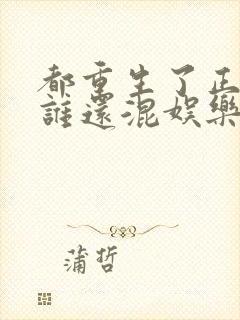 都重生了正
誰還混娛樂
蒲哲